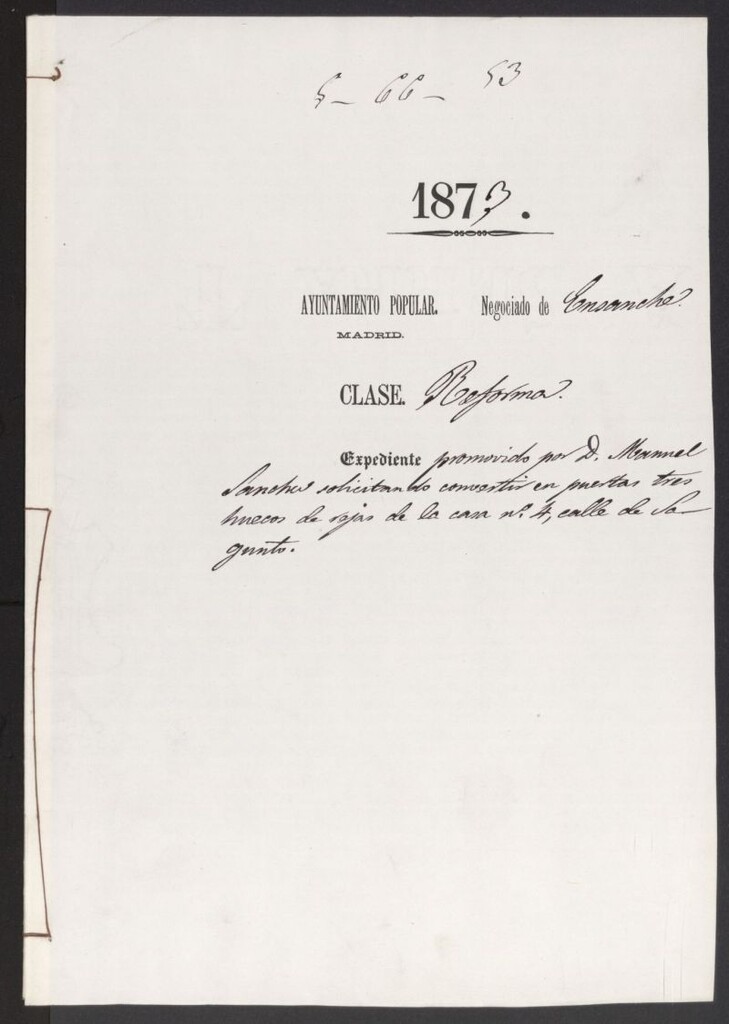 5 - 66 - 53
1873.
AYUNTAMIENTO POPULAR. Negociado de Ensanche.
MADRID.
CLASE. Reforma.
Expediente promovido por D. Manuel
Sanchez solicitando convertir en puertas tres
huecos de rejas de la casa nº. 4, calle de Sa-
gunto.